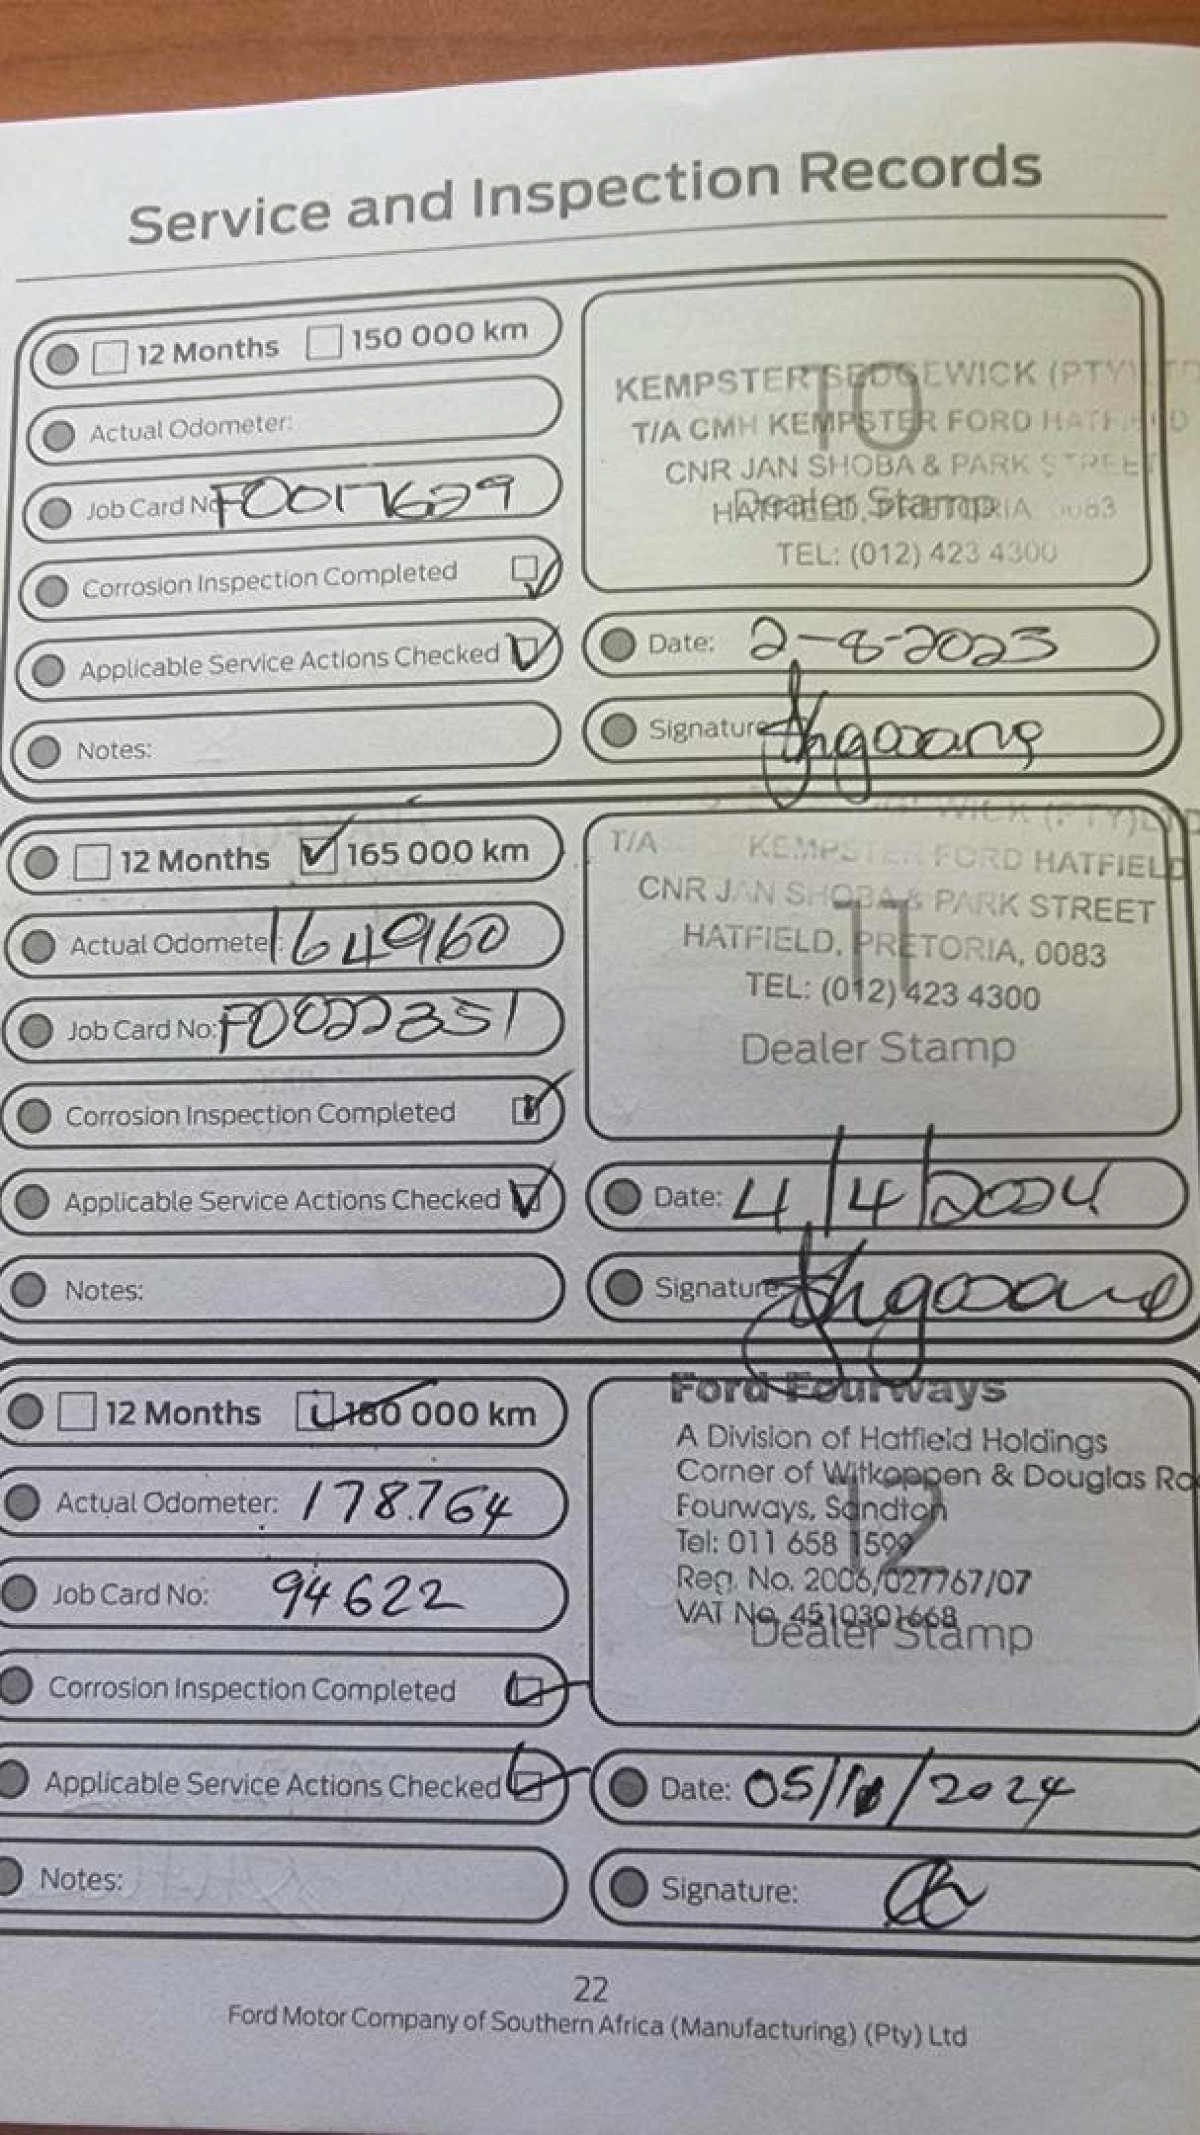 Service and Inspection Records
12 Months 150 000 km
Actual Odometer:
Job Card No F0017629
Corrosion Inspection Completed
Applicable Service Actions Checked
Notes:
10
KEMPSTER SEDGEWICK (PTY) LTD
T/A CMH KEMPSTER FORD HATFIELD
CNR JAN SHOBA & PARK STREET
HATFIELD, PRETORIA 0083
Dealer Stamp
TEL: (012) 423 4300
Date: 2-8-2023
Signature
12 Months 165 000 km
Actual Odometer: 164960
Job Card No: F0022351
Corrosion Inspection Completed
Applicable Service Actions Checked
Notes:
WICK (PTY) LTD
T/A KEMPSTER FORD HATFIELD
CNR JAN SHOBA & PARK STREET
11
HATFIELD, PRETORIA, 0083
TEL: (012) 423 4300
Dealer Stamp
Date: 4/4/2024
Signature
12 Months 180 000 km
Actual Odometer: 178.764
Job Card No: 94622
Corrosion Inspection Completed
Applicable Service Actions Checked
Notes:
Ford Fourways
A Division of Hatfield Holdings
Corner of Witkoppen & Douglas Ro
Fourways, Sandton
12
Tel: 011 658 1599
Reg. No. 2006/027767/07
VAT No. 4510301668
Dealer Stamp
Date: 05/11/2024
Signature:
22
Ford Motor Company of Southern Africa (Manufacturing) (Pty) Ltd